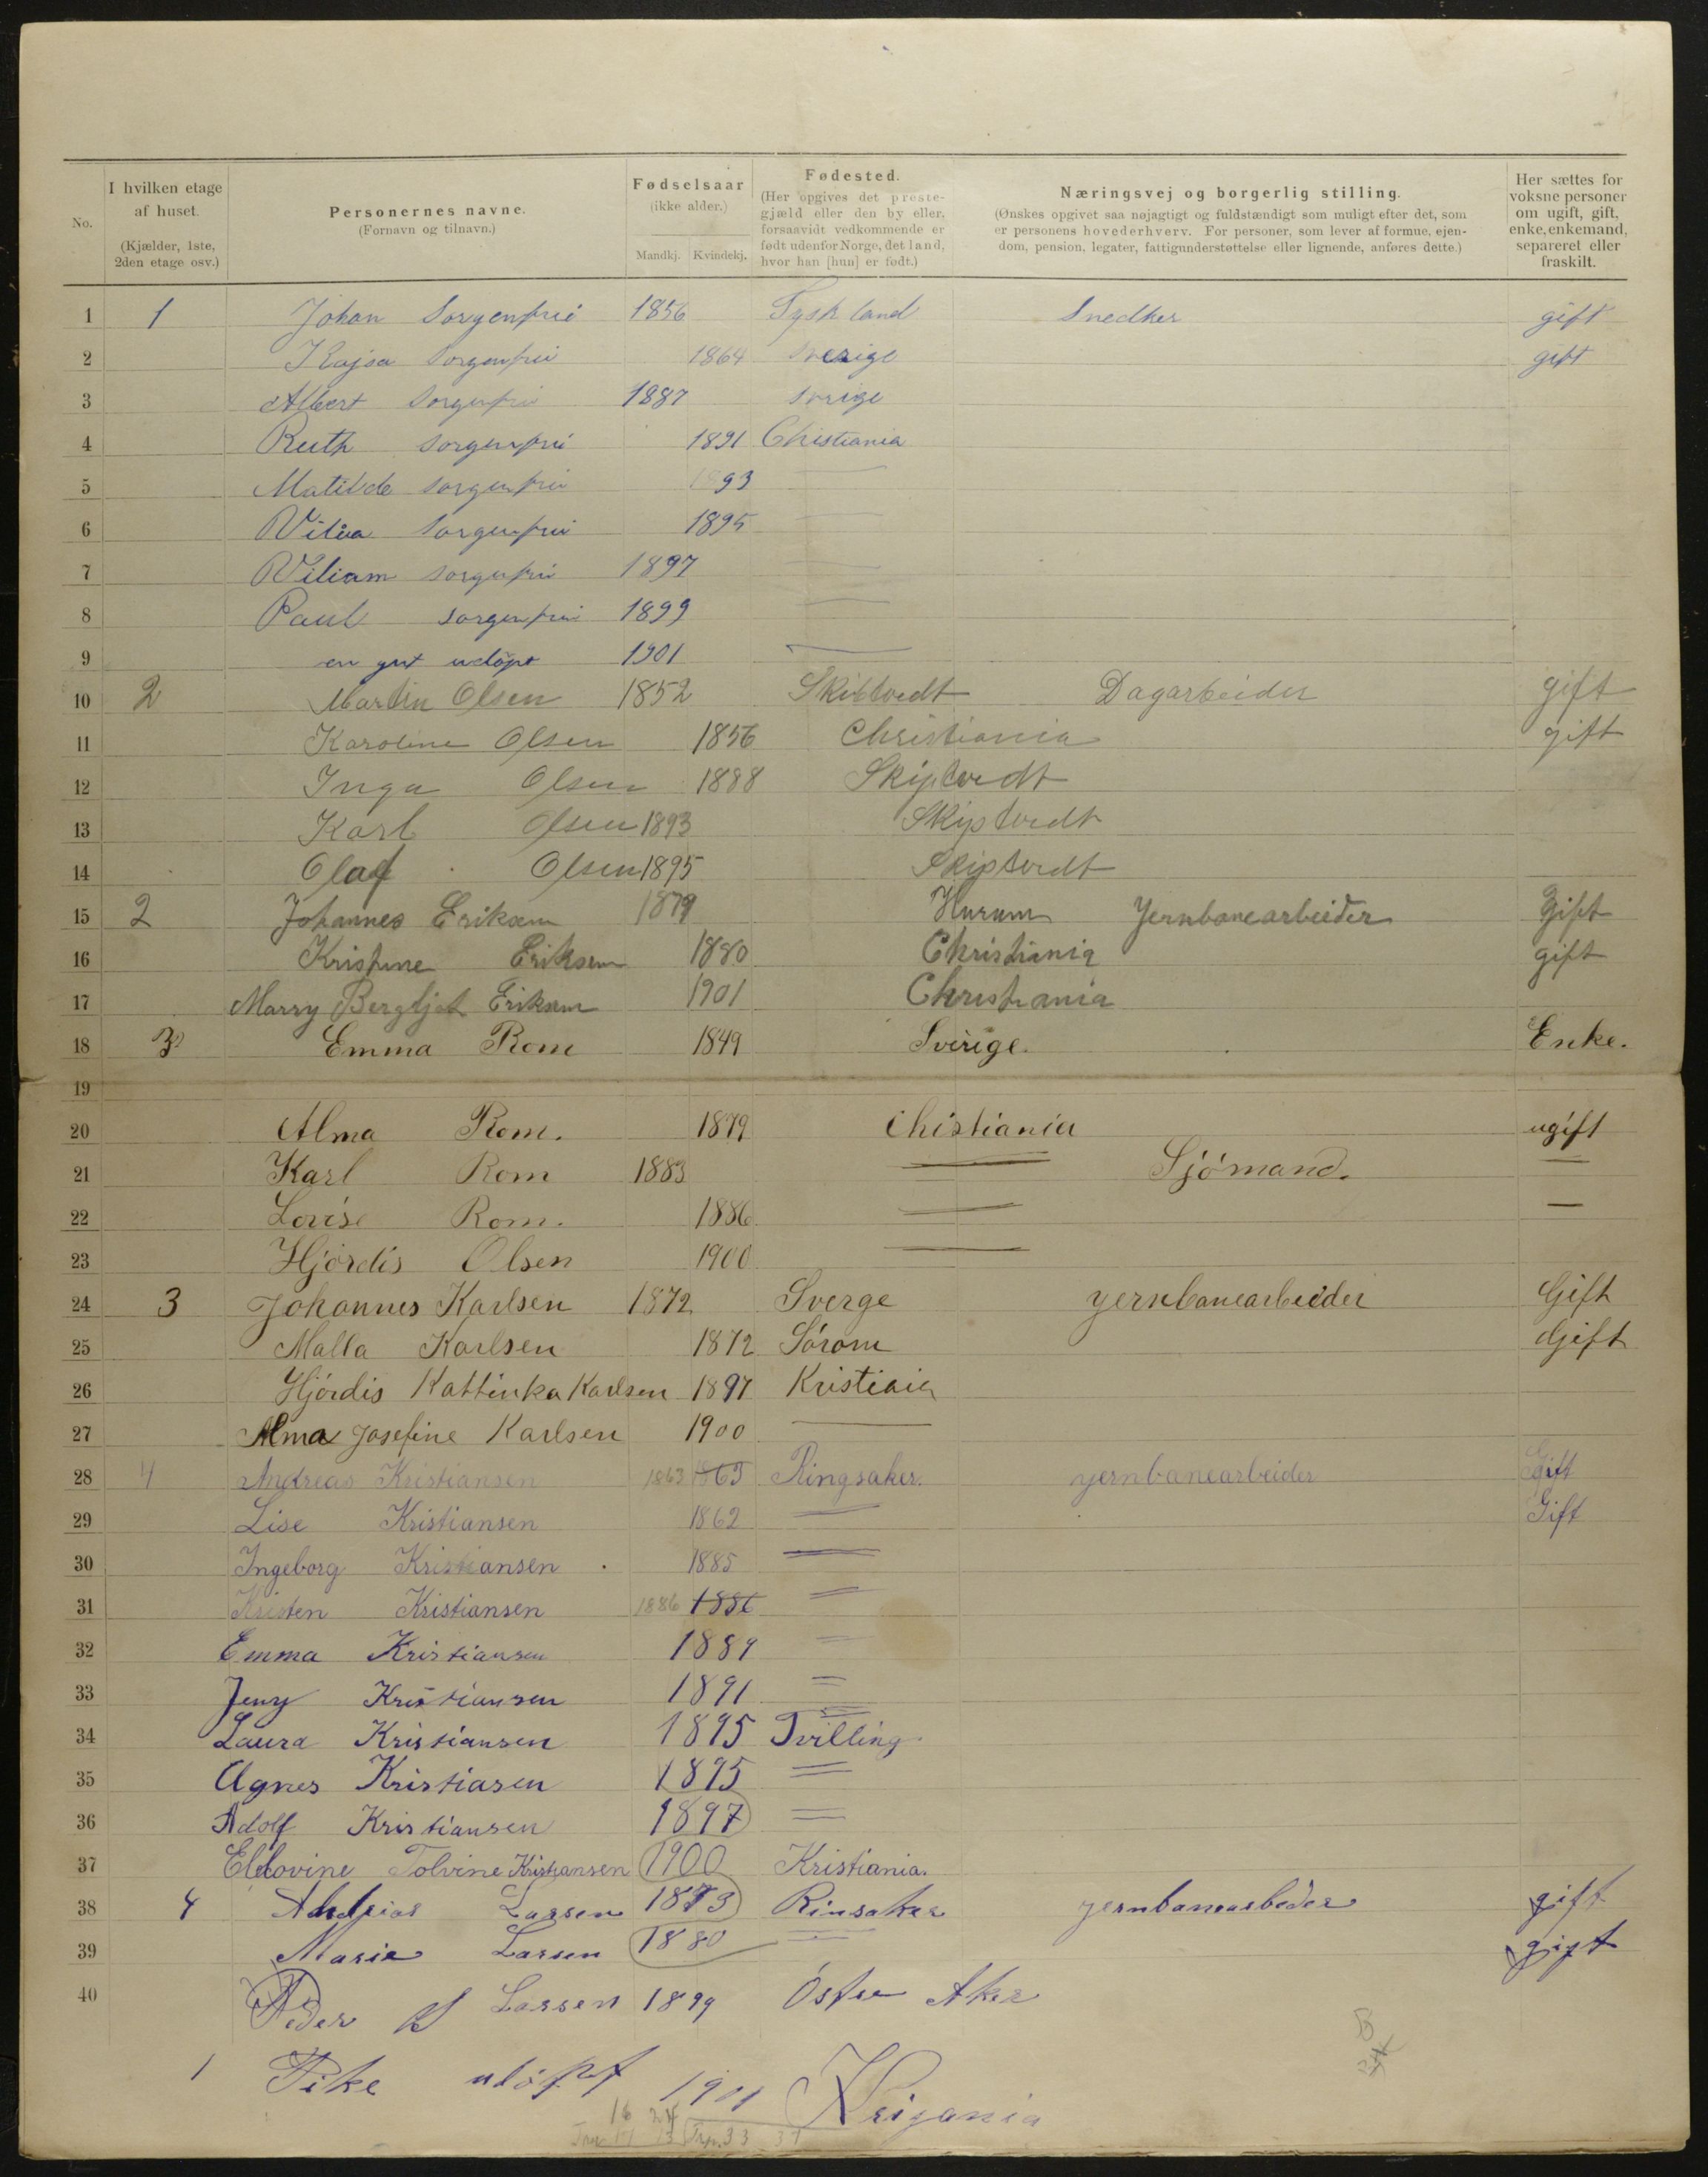 No.
I hvilken etage af huset. (Kjælder, 1ste, 2den etage osv.)
Personernes navne. (Fornavn og tilnavn.)
Fødselsaar (ikke alder.) Mandkj. Kvindekj.
Fødested. (Her opgives det prestegjæld eller den by eller, forsaavidt vedkommende er født udenfor Norge, det land, hvor han [hun] er født.)
Næringsvej og borgerlig stilling. (Ønskes opgivet saa nøjagtigt og fuldstændigt som muligt efter det, som er personens hovederhverv. For personer, som lever af formue, ejendom, pension, legater, fattigunderstøttelse eller lignende, anføres dette.)
Her sættes for voksne personer om ugift, gift, enke, enkemand, separeret eller fraskilt.
1 1 Johan Sorgenfrei 1856 Tyskland Snedker gift
2 Kajsa Sorgenfrei 1864 Sverige gift
3 Albert Sorgenfrei 1887 Sverige
4 Ruth Sorgenfrei 1891 Christiania
5 Matilde Sorgenfrei 1893 —
6 Sorgenfrei 1895 —
7 Viliam Sorgenfrei 1897 —
8 Paul Sorgenfrei 1899 —
9 en gut udöpt 1901 —
10 2 Martin Olsen 1852 Skibtvedt Dagarbeider gift
11 Karoline Olsen 1856 Christiania gift
12 Inga Olsen 1888 Skiptvedt
13 Karl Olsen 1893 Skiptvedt
14 Olaf Olsen 1895 Skiptvedt
15 2 Johannes Eriksen 1879 Hurum Jernbanearbeider Gift
16 Kristine Eriksen 1880 Christiania gift
17 Marry Bergljot Eriksen 1901 Christiania
18 3 Emma Rom 1849 Sverige. Enke.
19
20 Alma Rom. 1879 Chistiania ugift
21 Karl Rom 1883 — Sjómand. —
22 Lovise Rom. 1886 — —
23 Hjördis Olsen 1900 —
24 3 Johannes Karlsen 1872 Sverge Jernbanearbeider Gift
25 Malla Karlsen 1872 Sórom Gift
26 Hjórdis Kattinka Karlsen 1897 Kristiaia
27 Alma Josefine Karlsen 1900 —
28 4 Andreas Kristiansen 1863 1863 Ringsaker. jernbanearbeider Gift
29 Lise Kristiansen 1862 — Gift
30 Ingeborg Kristiansen 1885 —
31 Kristen Kristiansen 1886 1886 —
32 Emma Kristiansen 1889 —
33 Jeny Kristiansen 1891 —
34 Laura Kristiansen 1895 Tvilling
35 Agnes Kristiasen 1895 —
36 Adolf Kristiansen 1897 —
37 Eldovine Tolvine Kristiansen 1900 Kristiania.
38 4 Larsen 1873 Rinsaker jernbanearbeder gift
39 Marie Larsen 1880 — gift
40 Peder Larsen 1899 Óstre Aker
1 Pike udöpt 1901